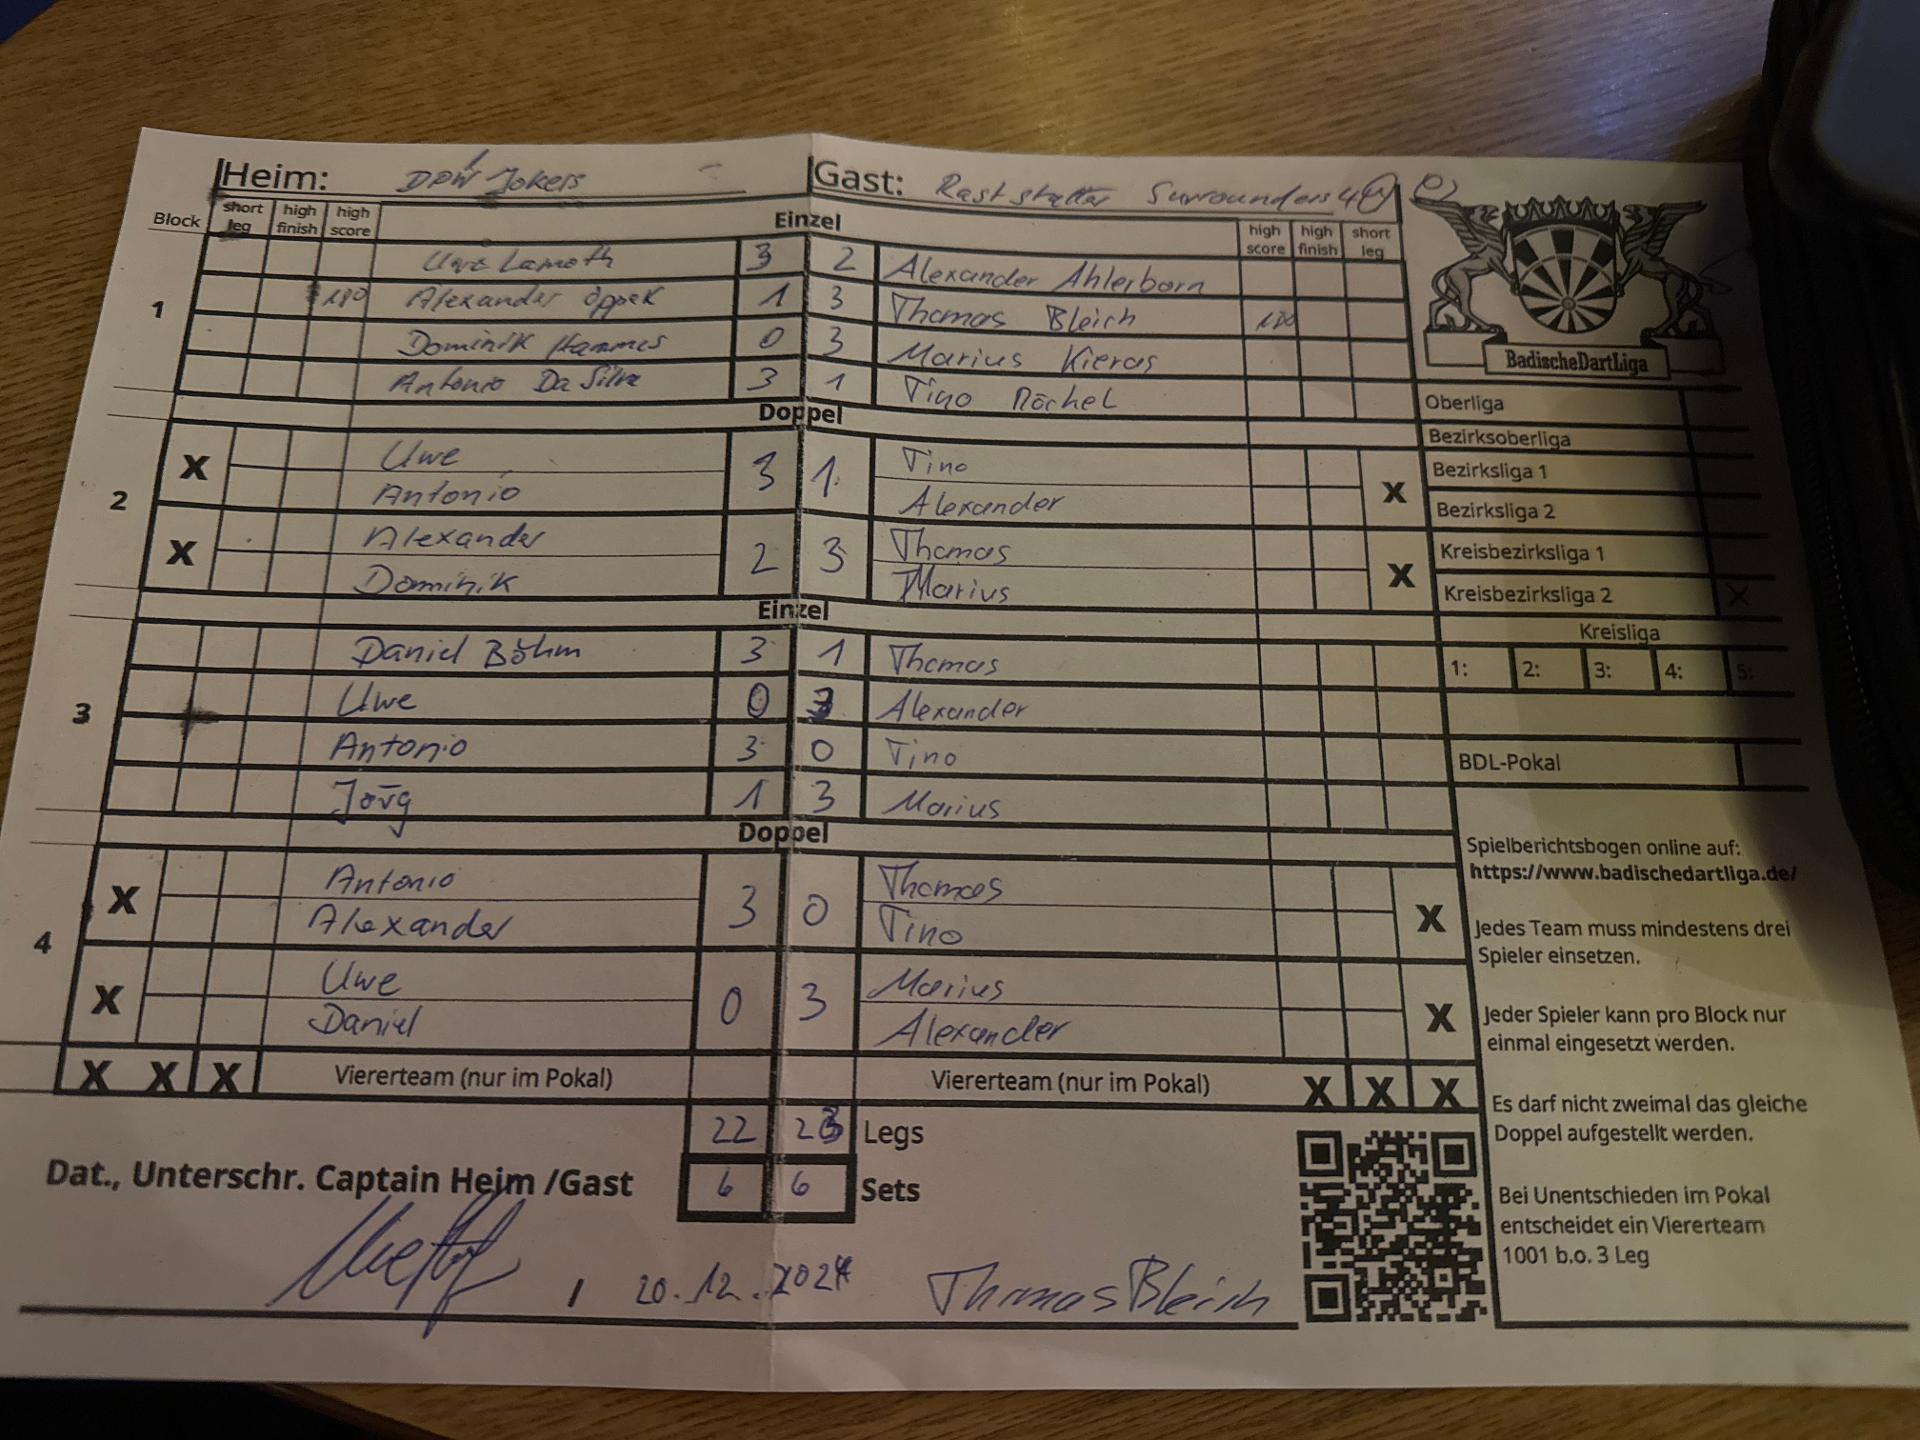 Heim: DPW Jokers Gast: Raststatter Surrounders 4
Block short leg high finish high score Einzel high score high finish short leg
1
Uwe Lamoth 3 2 Alexander Ahlerborn
180 Alexander Oppek 1 3 Thomas Bleich 180
Dominik Hammes 0 3 Marius Kieras
Antonio Da Silva 3 1 Tino Möchel
Doppel
2
X Uwe 3 1 Tino X
Antonio Alexander
X Alexander 2 3 Thomas X
Dominik Marius
Einzel
3
Daniel Böhm 3 1 Thomas
Uwe 0 3 Alexander
Antonio 3 0 Tino
Jörg 1 3 Marius
Doppel
4
X Antonio 3 0 Thomas X
Alexander Tino
X Uwe 0 3 Marius X
Daniel Alexander
X X X Viererteam (nur im Pokal) Viererteam (nur im Pokal) X X X
22 23 Legs
6 6 Sets
Dat., Unterschr. Captain Heim /Gast
/ 20.12.2024 Thomas Bleich
BadischeDartLiga
Oberliga
Bezirksoberliga
Bezirksliga 1
Bezirksliga 2
Kreisbezirksliga 1
Kreisbezirksliga 2 X
Kreisliga
1: 2: 3: 4: 5:
BDL-Pokal
Spielberichtsbogen online auf:
https://www.badischedartliga.de/
Jedes Team muss mindestens drei
Spieler einsetzen.
Jeder Spieler kann pro Block nur
einmal eingesetzt werden.
Es darf nicht zweimal das gleiche
Doppel aufgestellt werden.
Bei Unentschieden im Pokal
entscheidet ein Viererteam
1001 b.o. 3 Leg